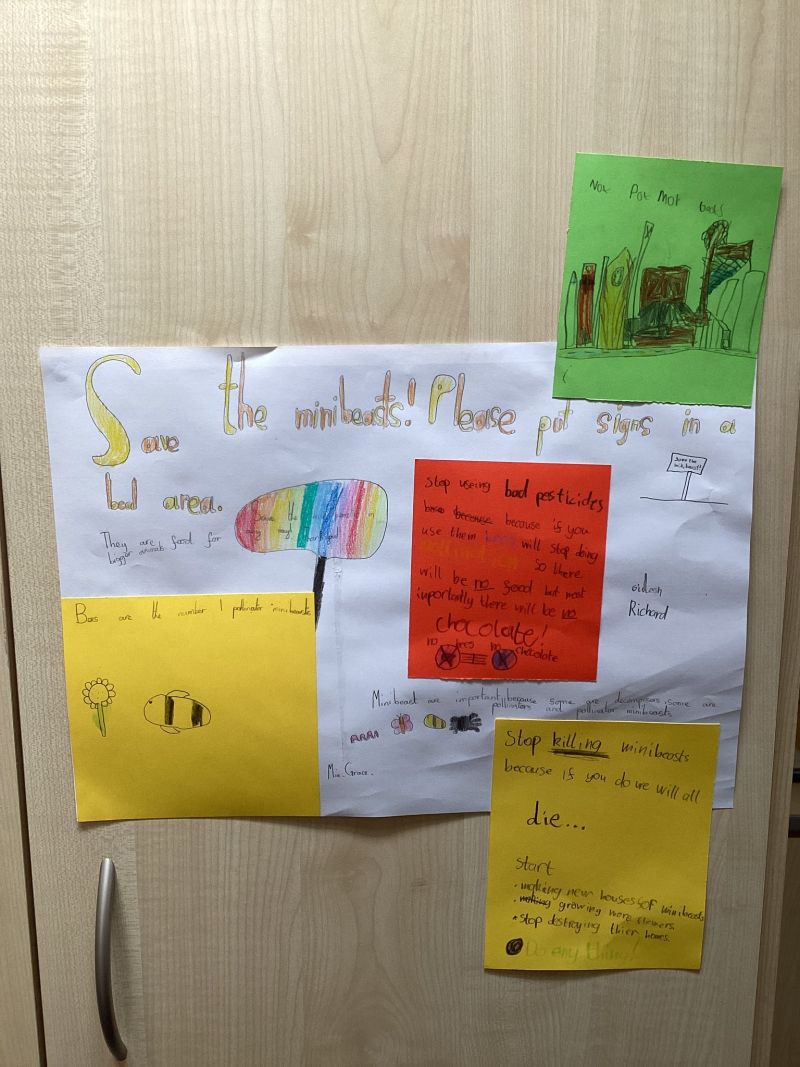 Not Pot Mot
Save the minibeasts! Please put signs in a
bad area.
Save the
minibeast!
They are food for
bigger animals
Save the
Stop useing bad pesticides
because because if you
use them bees will stop doing
pollination so there
will be no food but most
inportantly there will be no
chocolate!
no bees no chocolate
Richard
Bees are the number 1 pollinator minibeasts
Minibeast are important because some are decomposers, some are
pollinators and pollinator minibeasts.
Mia. Grace.
Stop killing minibeasts
because if you do we will all
die...
Start
making new houses of minibeasts
making growing more flowers.
stop destroying thier homes.
Do any thing!